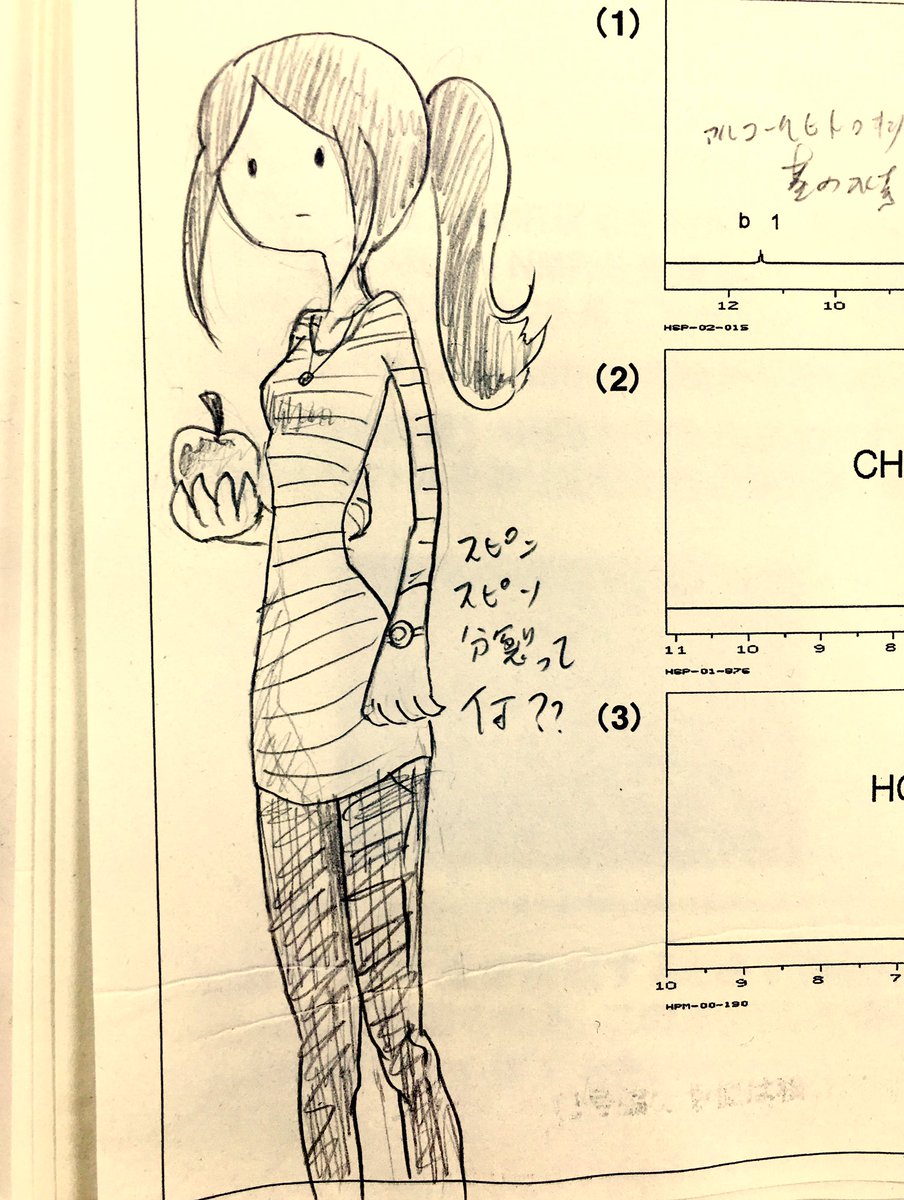 (1)
アルコールヒドロキシ
基の水素
b 1
12 10
HSP-02-015
(2)
CH
11 10 9 8
HSP-01-876
スピン
スピン
分裂って
何??
(3)
10 9 8 7
HPM-00-190